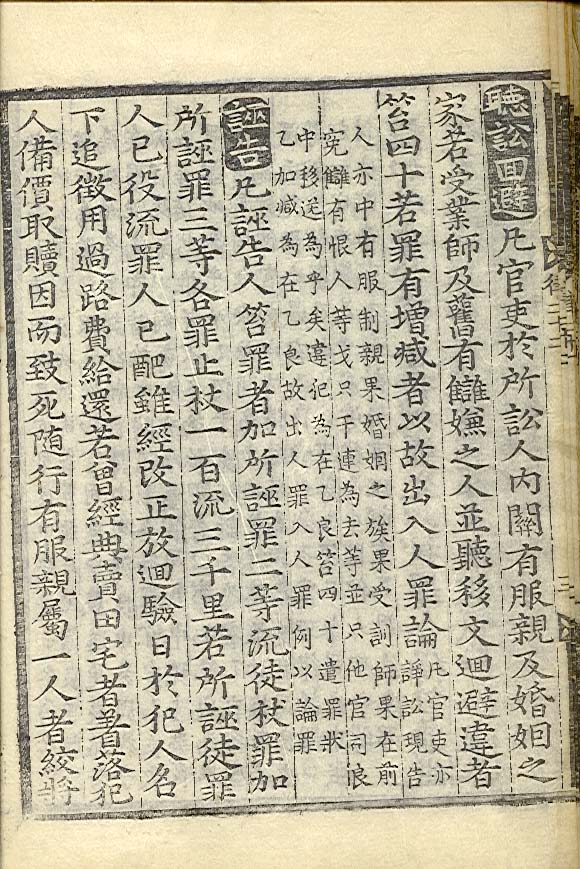 聽訟回避 凡官吏於所訟人內關有服親及婚姻之
家若受業師及舊有讎嫌之人並聽移文迴避違者
笞四十若罪有增减者以故出入人罪論 凡官吏亦
諍訟現告
人亦中有服制親果婚姻之族果受訓師果在前
寃讎有恨人等戈只干連為去等並只他官司良
中移送為乎矣違犯為在乙良笞四十遣罪狀
乙加减為在乙良故出人罪入人罪以論罪
誣告 凡誣告人笞罪者加所誣罪二等流徒杖罪加
所誣罪三等各罪止杖一百流三千里若所誣徒罪
人已役流罪人已配雖經改正放迴驗日於犯人名
下追徵用過路費給還若曾經典賣田宅者著落犯
人備價取贖因而致死随行有服親屬一人者絞將